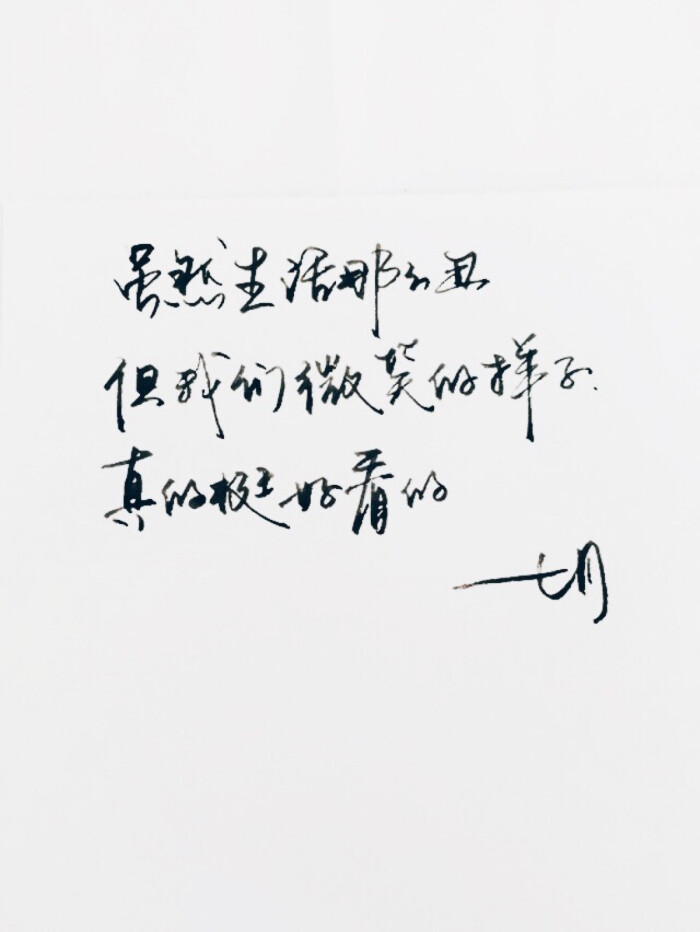 虽然生活那么丑
但我们微笑的样子.
真的挺好看的
一七月